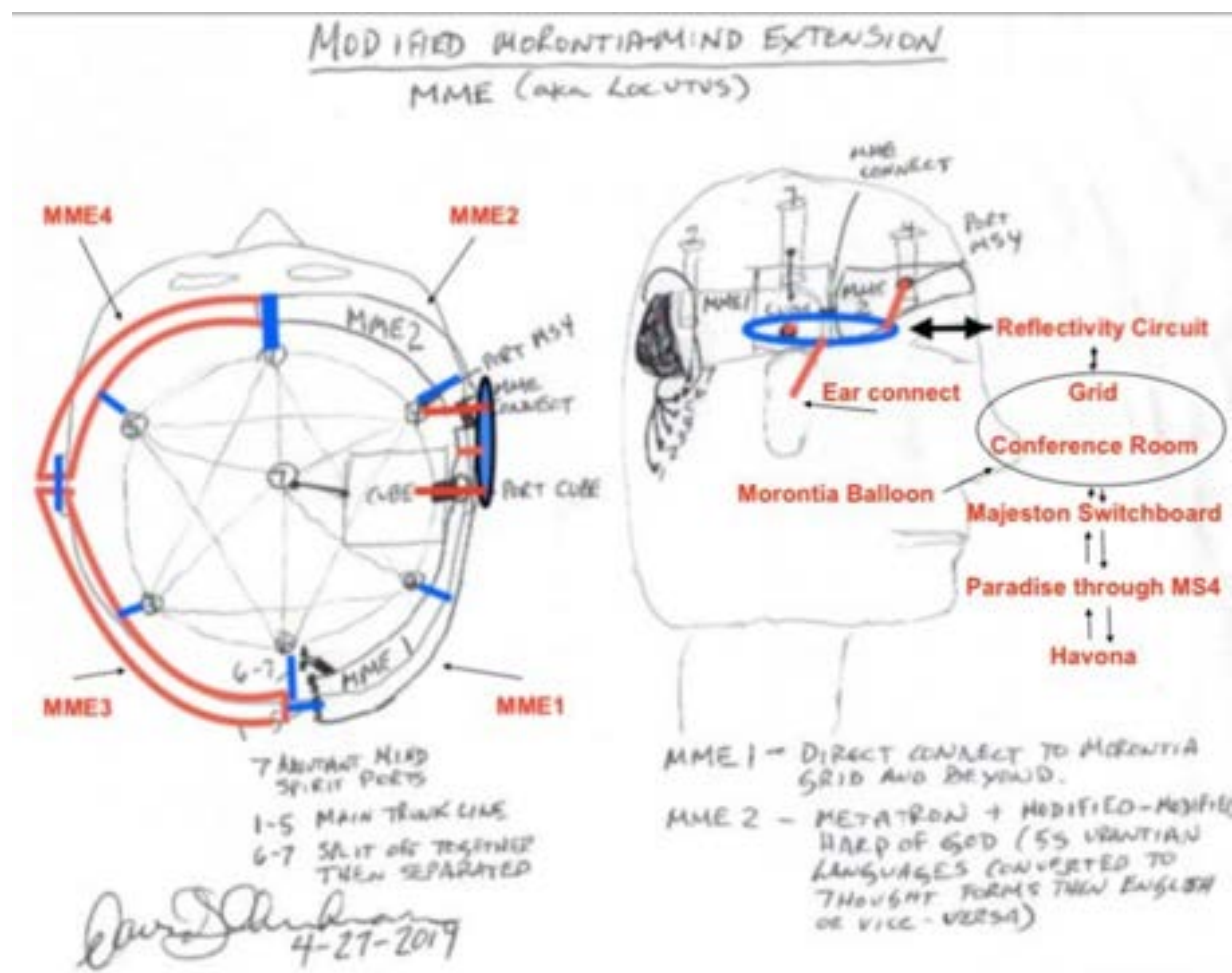 MODIFIED MORONTIA-MIND EXTENSION
MME (aka LOCUTUS)
MME4
MME2
MME2
PORT MS4
MME
CONNECT
CUBE
PORT CUBE
7
6-7
MME 1
MME3
MME1
7 ADJUTANT MIND
SPIRIT PORTS
1-5 MAIN TRUNK LINE
6-7 SPLIT OFF TOGETHER
THEN SEPARATED
4-27-2019
MME
CONNECT
PORT
MS4
2
7
4
MME1
CUBE
MME
2
Reflectivity Circuit
Ear connect
Grid
Conference Room
Morontia Balloon
Majeston Switchboard
Paradise through MS4
Havona
MME 1 - DIRECT CONNECT TO MORONTIA
GRID AND BEYOND.
MME 2 - METATRON + MODIFIED-MODIFIED
HARP OF GOD (55 URANTIAN
LANGUAGES CONVERTED TO
THOUGHT FORMS THEN ENGLISH
OR VICE-VERSA)